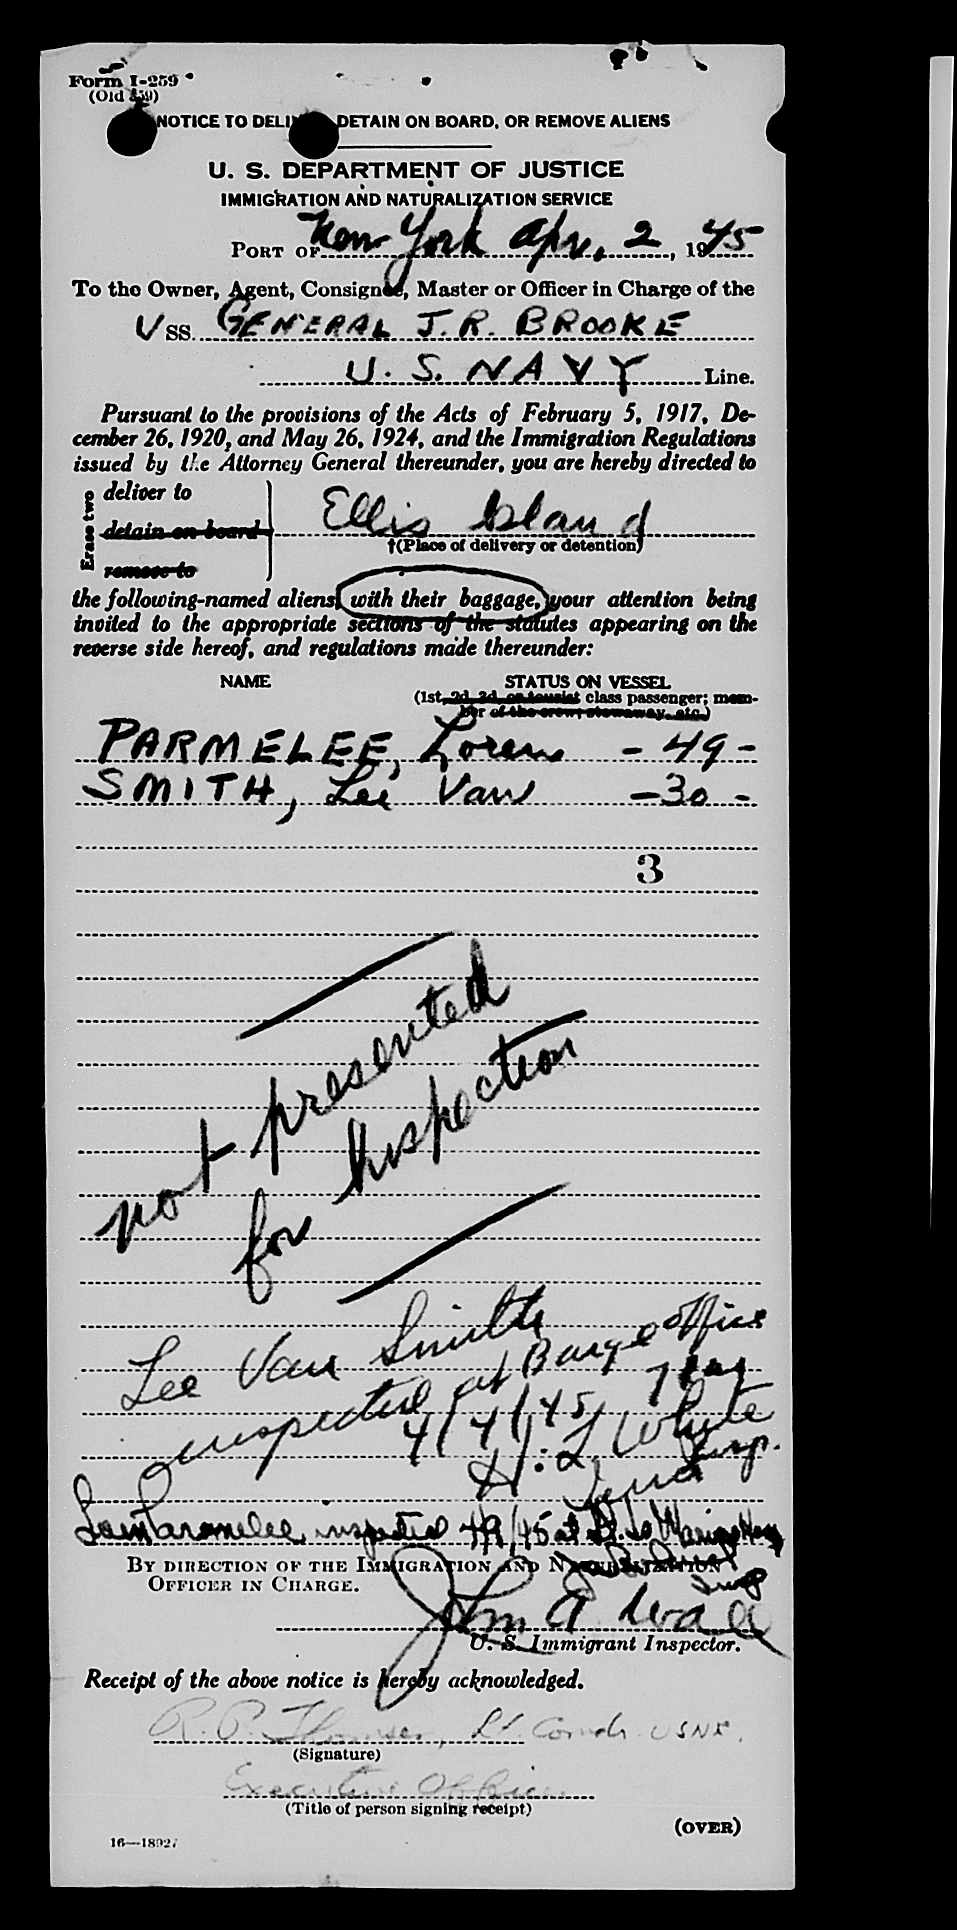 Form I-259
(Old 259)
NOTICE TO DELIVER, DETAIN ON BOARD, OR REMOVE ALIENS
U. S. DEPARTMENT OF JUSTICE
IMMIGRATION AND NATURALIZATION SERVICE
PORT OF New York Apr. 2, 1945
To the Owner, Agent, Consignee, Master or Officer in Charge of the
USS. GENERAL J. R. BROOKE
U. S. NAVY Line.
Pursuant to the provisions of the Acts of February 5, 1917, De-
cember 26, 1920, and May 26, 1924, and the Immigration Regulations
issued by the Attorney General thereunder, you are hereby directed to
Erase two
deliver to
detain on board
remove to
Ellis Island
†(Place of delivery or detention)
the following-named aliens, with their baggage, your attention being
invited to the appropriate sections of the statutes appearing on the
reverse side hereof, and regulations made thereunder:
NAME STATUS ON VESSEL
(1st, 2d, 3d, or tourist class passenger; mem-
ber of the crew; stowaway, etc.)
PARMELEE, Loren - 49 -
SMITH, Lee Van - 30 -
3
not presented
for Inspection
Lee Van Smith
inspected at Barge office
4/4/45
H. L. White
Insp.
Parmelee inspected
BY DIRECTION OF THE IMMIGRATION AND NATURALIZATION
OFFICER IN CHARGE.
John A. Wall
U. S. Immigrant Inspector.
Receipt of the above notice is hereby acknowledged.
R. P. Lt. Comdr. USNR.
(Signature)
Executive Officer
(Title of person signing receipt)
(OVER)
16—18927